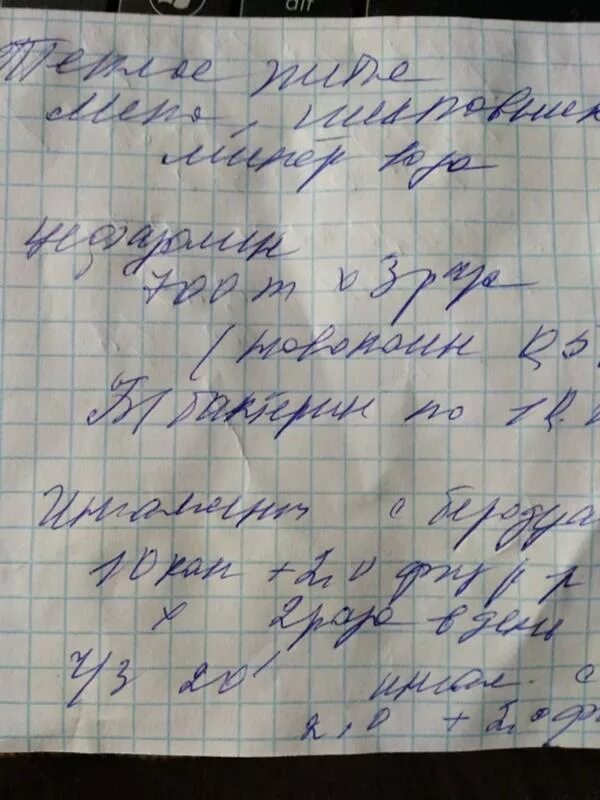 alt
Теплое питье
Мёд, шиповник
минер вода
цефазолин
700 т x 3 р/д
(новокаин 0,5
Б/ бактерин по 1
Ингаляции с беродуа
10 кап + 2,0 физ р-р
x 2 раза в день
ч/з 20' ингал. с
2,0 + 2,0 ф